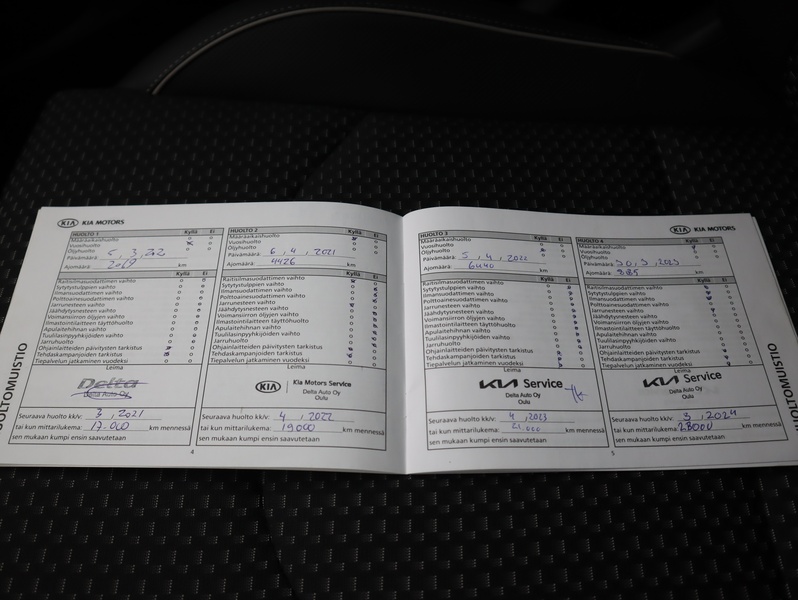 KIA KIA MOTORS
HUOLTO 1 Kyllä Ei
Määräaikaishuolto
Vuosihuolto
Öljyhuolto
Päivämäärä:
Ajomäärä: km
Kyllä Ei
Raitisilmasuodattimen vaihto
Sytytystulppien vaihto
Ilmansuodattimen vaihto
Polttoainesuodattimen vaihto
Jarrunesteen vaihto
Jäähdytysnesteen vaihto
Voimansiirron öljyjen vaihto
Ilmastointilaitteen täyttöhuolto
Apulaitehihnan vaihto
Tuulilasinpyyhkijöiden vaihto
Jarruhuolto
Ohjainlaitteiden päivitysten tarkistus
Tehdaskampanjoiden tarkistus
Tiepalvelun jatkaminen vuodeksi
Leima
Delta
Delta Auto Oy
Seuraava huolto kk/v: 3 , 2021
tai kun mittarilukema: 17.000 km mennessä
sen mukaan kumpi ensin saavutetaan
4
HUOLTO 2 Kyllä Ei
Määräaikaishuolto
Vuosihuolto
Öljyhuolto
Päivämäärä: 6 , 4 , 2021
Ajomäärä: 4426 km
Kyllä Ei
Raitisilmasuodattimen vaihto
Sytytystulppien vaihto
Ilmansuodattimen vaihto
Polttoainesuodattimen vaihto
Jarrunesteen vaihto
Jäähdytysnesteen vaihto
Voimansiirron öljyjen vaihto
Ilmastointilaitteen täyttöhuolto
Apulaitehihnan vaihto
Tuulilasinpyyhkijöiden vaihto
Jarruhuolto
Ohjainlaitteiden päivitysten tarkistus
Tehdaskampanjoiden tarkistus
Tiepalvelun jatkaminen vuodeksi
Leima
KIA Kia Motors Service
Delta Auto Oy
Oulu
Seuraava huolto kk/v: 4 , 2022
tai kun mittarilukema: 19000 km mennessä
sen mukaan kumpi ensin saavutetaan
HUOLTO 3 Kyllä Ei
Määräaikaishuolto
Vuosihuolto
Öljyhuolto
Päivämäärä: 5 , 4 , 2022
Ajomäärä: 6440 km
Kyllä Ei
Raitisilmasuodattimen vaihto
Sytytystulppien vaihto
Ilmansuodattimen vaihto
Polttoainesuodattimen vaihto
Jarrunesteen vaihto
Jäähdytysnesteen vaihto
Voimansiirron öljyjen vaihto
Ilmastointilaitteen täyttöhuolto
Apulaitehihnan vaihto
Tuulilasinpyyhkijöiden vaihto
Jarruhuolto
Ohjainlaitteiden päivitysten tarkistus
Tehdaskampanjoiden tarkistus
Tiepalvelun jatkaminen vuodeksi
Leima
KIA Service
Delta Auto Oy
Oulu
Seuraava huolto kk/v: 4 , 2023
tai kun mittarilukema: km mennessä
sen mukaan kumpi ensin saavutetaan
5
KIA KIA MOTORS
HUOLTO 4 Kyllä Ei
Määräaikaishuolto
Vuosihuolto
Öljyhuolto
Päivämäärä: 30 , 3 , 2023
Ajomäärä: km
Kyllä Ei
Raitisilmasuodattimen vaihto
Sytytystulppien vaihto
Ilmansuodattimen vaihto
Polttoainesuodattimen vaihto
Jarrunesteen vaihto
Jäähdytysnesteen vaihto
Voimansiirron öljyjen vaihto
Ilmastointilaitteen täyttöhuolto
Apulaitehihnan vaihto
Tuulilasinpyyhkijöiden vaihto
Jarruhuolto
Ohjainlaitteiden päivitysten tarkistus
Tehdaskampanjoiden tarkistus
Tiepalvelun jatkaminen vuodeksi
Leima
KIA Service
Delta Auto Oy
Oulu
Seuraava huolto kk/v: 3 , 2024
tai kun mittarilukema: 23000 km mennessä
sen mukaan kumpi ensin saavutetaan